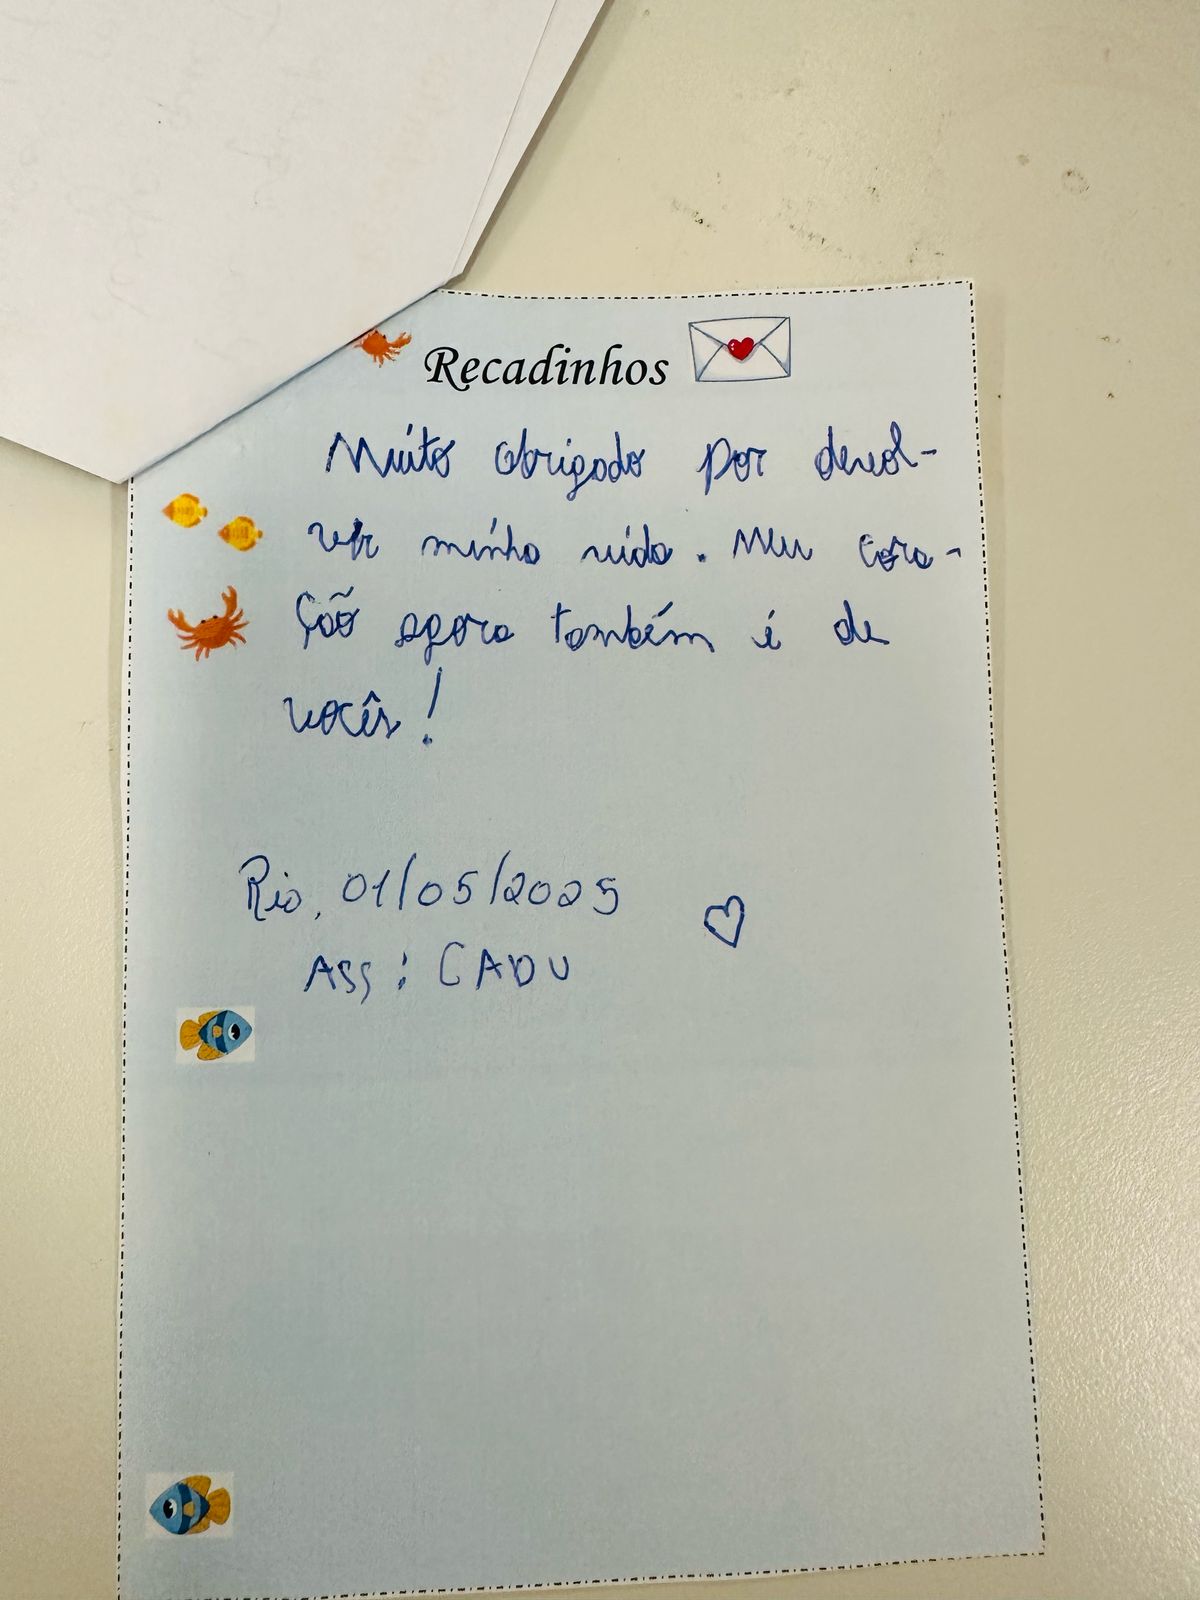 Recadinhos
Muito obrigado por devol-
ver minha vida. Meu cora-
ção agora também é de
vocês!
Rio, 01/05/2025
ASS: CADU